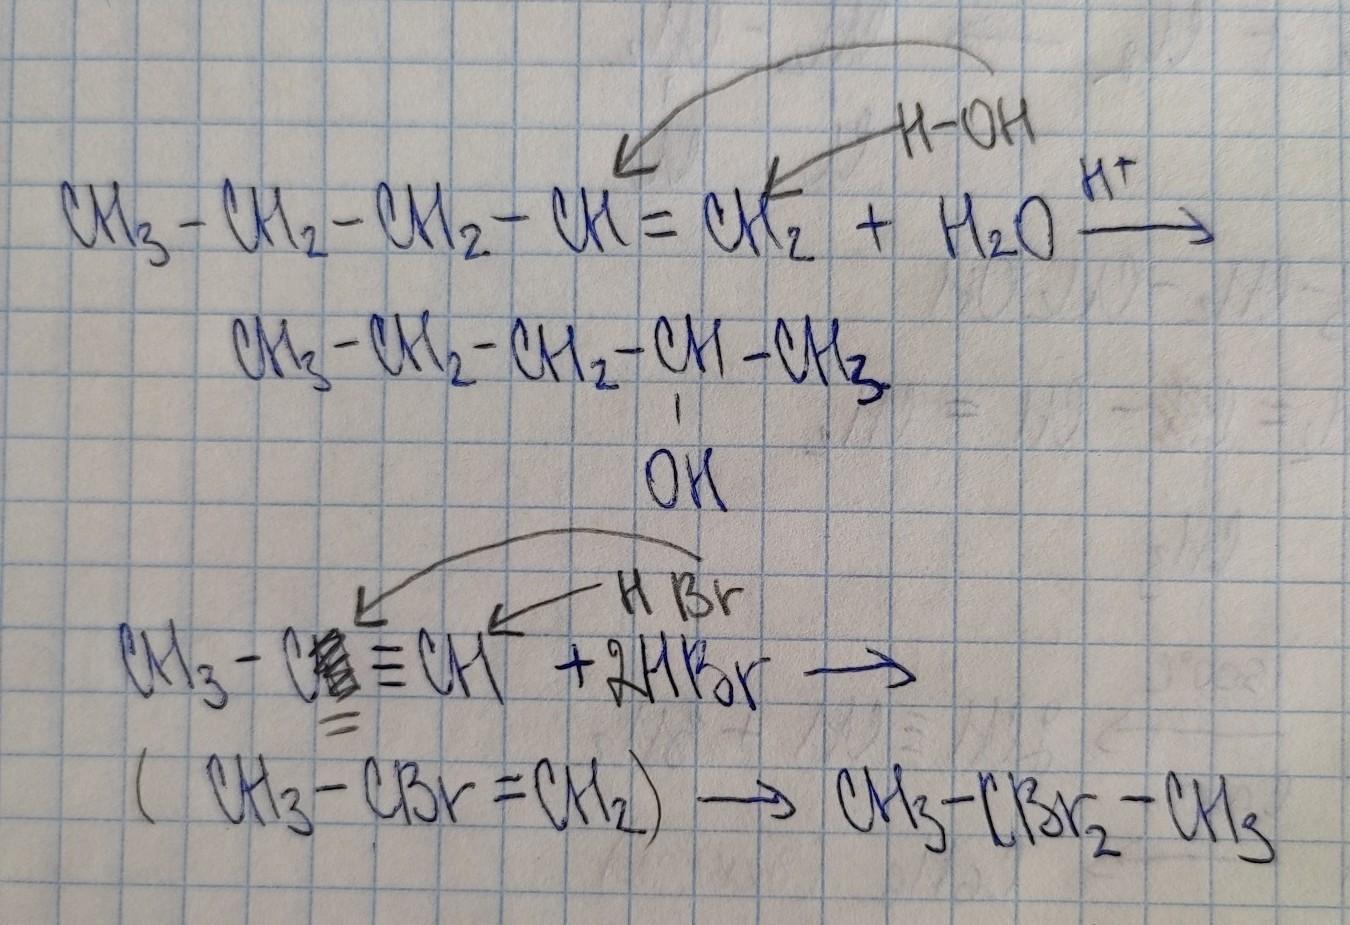 H-OH
CH₃-CH₂-CH₂-CH=CH₂ + H₂O H⁺→
CH₃-CH₂-CH₂-CH-CH₃
OH
H Br
CH₃-C≡CH +2HBr →
(CH₃-CBr=CH₂) → CH₃-CBr₂-CH₃